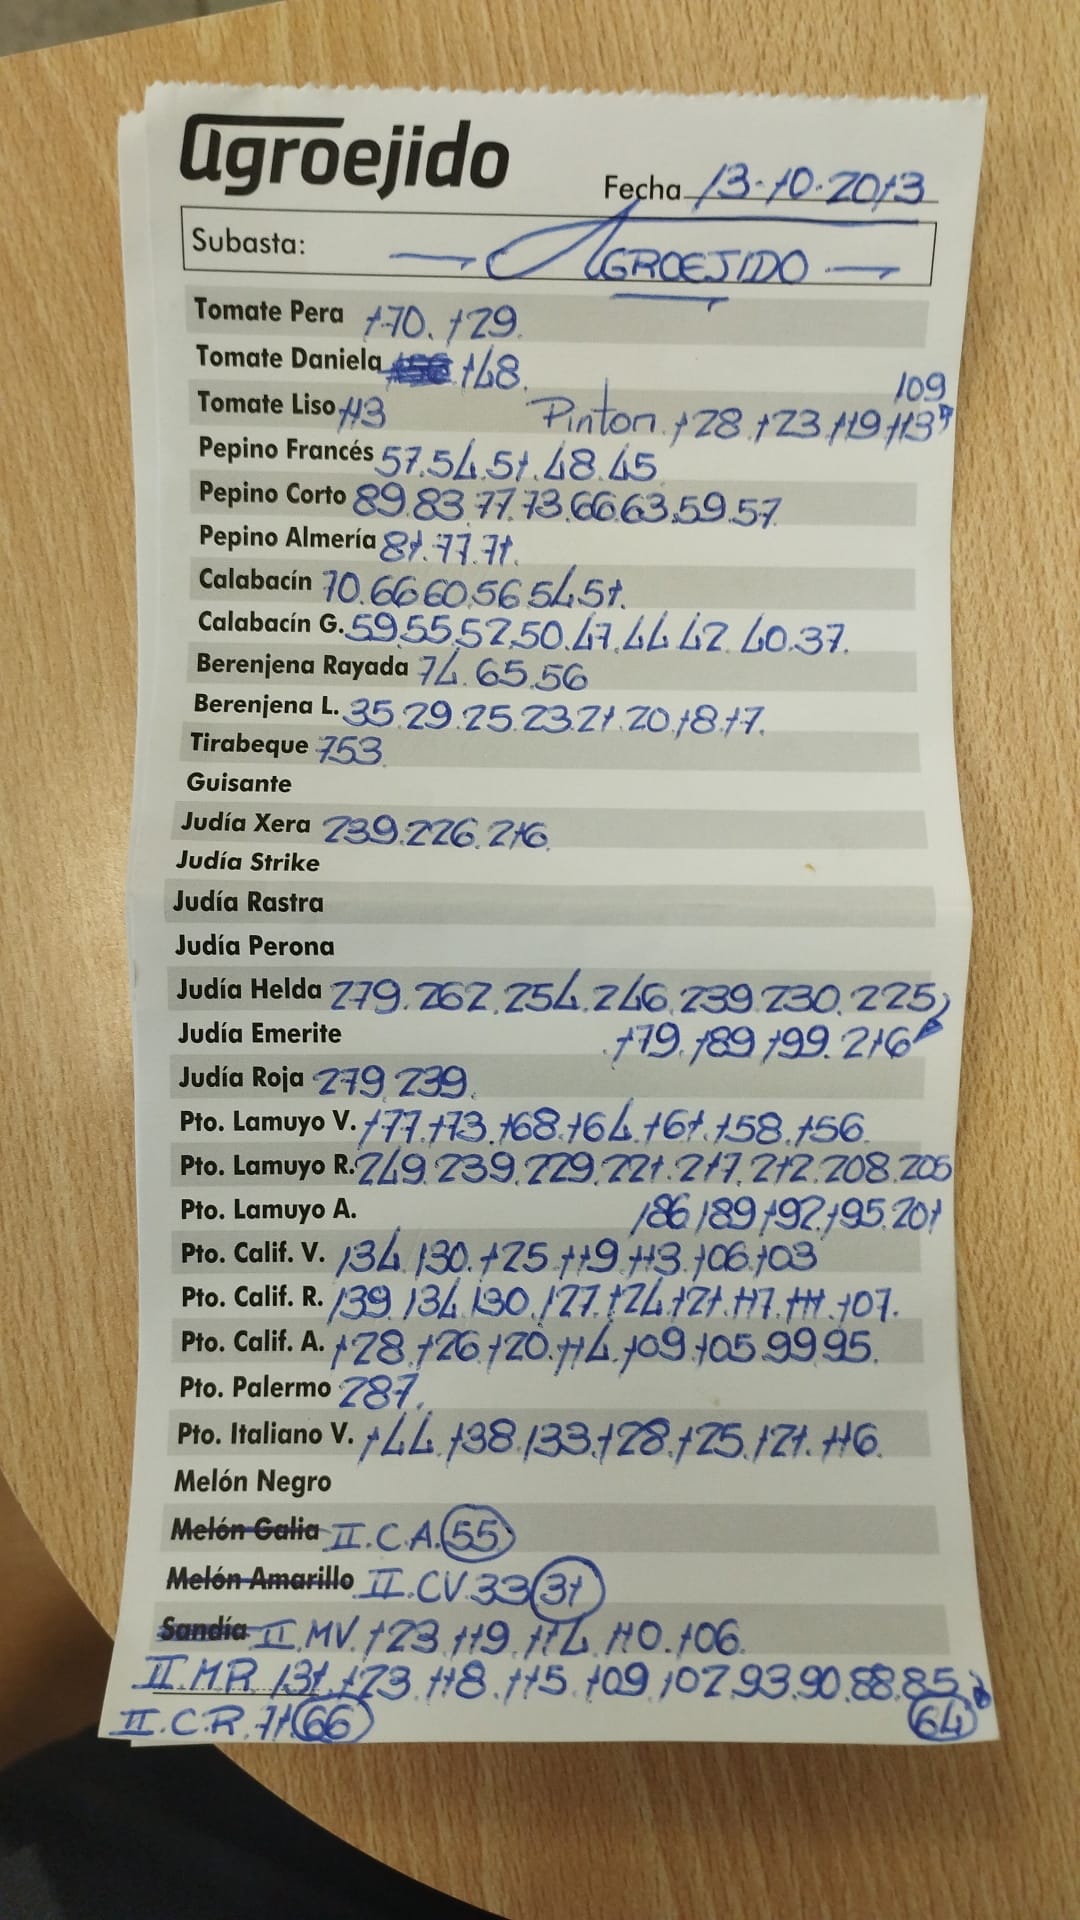 agroejido
Fecha 13-10-2013
Subasta: AGROEJIDO
Tomate Pera 170. 129.
Tomate Daniela 148.
109
Tomate Liso 113 Pinton. 128.123.119.113
Pepino Francés 57.54.51.48.45
Pepino Corto 89.83.77.73.66.63.59.57
Pepino Almería 81.77.71.
Calabacín 70.66.60.56.54.51.
Calabacín G. 59.55.52.50.47.44.42.40.37.
Berenjena Rayada 74.65.56
Berenjena L. 35.29.25.23.21.20.18.17.
Tirabeque 753
Guisante
Judía Xera 239.226.216.
Judía Strike
Judía Rastra
Judía Perona
Judía Helda 279.262.254.246.239.230.225
Judía Emerite 179.189.199.216
Judía Roja 279.239.
Pto. Lamuyo V. 177.173.168.164.161.158.156.
Pto. Lamuyo R. 249.239.229.221.217.212.208.205
Pto. Lamuyo A. 186.189.192.195.201
Pto. Calif. V. 134.130.125.119.113.106.103
Pto. Calif. R. 139.134.130.127.124.121.117.111.107.
Pto. Calif. A. 128.126.120.114.109.105.99.95.
Pto. Palermo 287.
Pto. Italiano V. 144.138.133.128.125.121.116.
Melón Negro
Melón Galia II.C.A. 55
Melón Amarillo II.CV.33 31
Sandía II.MV.123.119.114.110.106.
II.MR.131.123.118.115.109.102.93.90.88.85
II.C.R.71 66 64